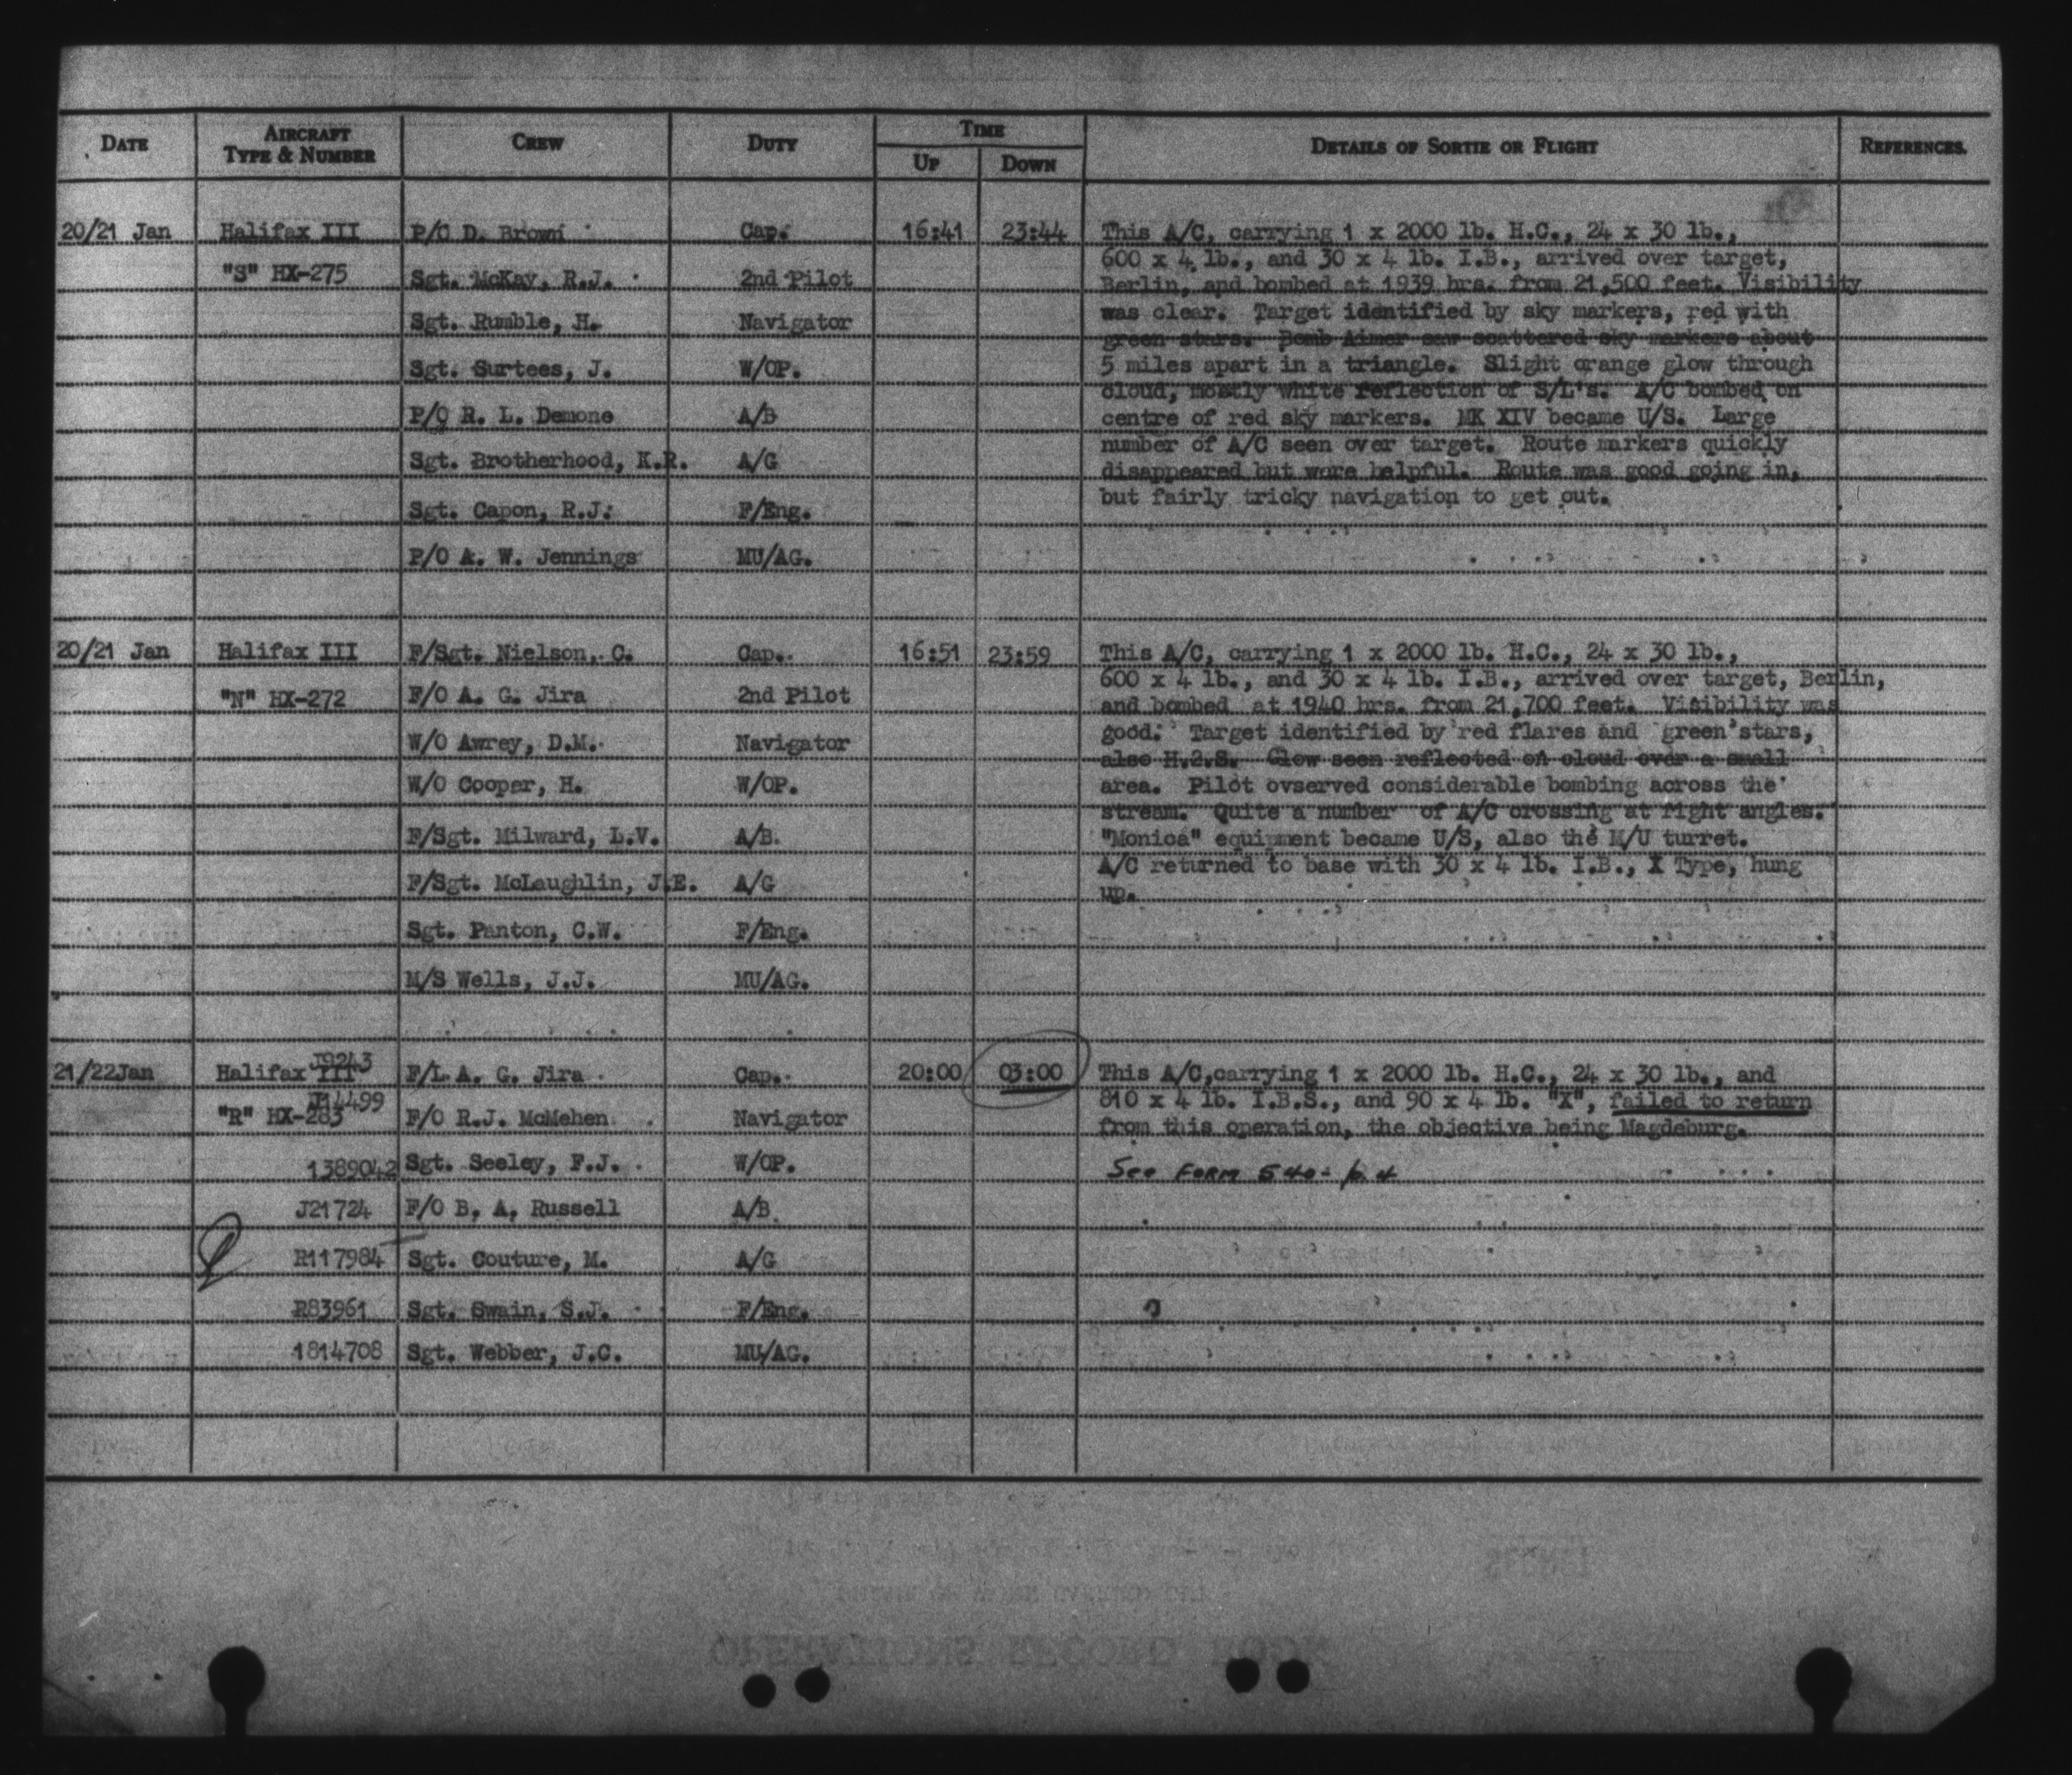 DATE AIRCRAFT TYPE & NUMBER CREW DUTY TIME UP DOWN DETAILS OF SORTIE OR FLIGHT REFERENCES.
20/21 Jan Halifax III P/O D. Brown Cap. 16:41 23:44 This A/C, carrying 1 x 2000 lb. H.C., 24 x 30 lb.,
600 x 4 lb., and 30 x 4 lb. I.B., arrived over target,
"S" HX-275 Sgt. McKay, R.J. 2nd Pilot Berlin, and bombed at 1939 hrs. from 21,500 feet. Visibility
Sgt. Rumble, H. Navigator was clear. Target identified by sky markers, red with
green stars. Bomb Aimer saw scattered sky markers about
Sgt. Surtees, J. W/OP. 5 miles apart in a triangle. Slight orange glow through
cloud, mostly white reflection of S/L's. A/C bombed on
P/O R. L. Demone A/B centre of red sky markers. MK XIV became U/S. Large
number of A/C seen over target. Route markers quickly
Sgt. Brotherhood, K.R. A/G disappeared but were helpful. Route was good going in,
but fairly tricky navigation to get out.
Sgt. Capon, R.J. F/Eng.
P/O A. W. Jennings MU/AG.
20/21 Jan Halifax III F/Sgt. Nielson, C. Cap. 16:51 23:59 This A/C, carrying 1 x 2000 lb. H.C., 24 x 30 lb.,
600 x 4 lb., and 30 x 4 lb. I.B., arrived over target, Berlin,
"N" HX-272 F/O A. G. Jira 2nd Pilot and bombed at 1940 hrs. from 21,700 feet. Visibility was
good. Target identified by red flares and green stars,
W/O Awrey, D.M. Navigator also H.2.S. Glow seen reflected on cloud over a small
W/O Cooper, H. W/OP. area. Pilot ovserved considerable bombing across the
stream. Quite a number of A/C crossing at right angles.
F/Sgt. Milward, L.V. A/B. "Monica" equipment became U/S, also the M/U turret.
A/C returned to base with 30 x 4 lb. I.B., X Type, hung
F/Sgt. McLaughlin, J.E. A/G up.
Sgt. Panton, C.W. F/Eng.
M/S Wells, J.J. MU/AG.
J9243
21/22Jan Halifax III F/L A. G. Jira Cap. 20:00 03:00 This A/C,carrying 1 x 2000 lb. H.C., 24 x 30 lb., and
J14499 810 x 4 lb. I.B.S., and 90 x 4 lb. "X", failed to return
"R" HX-283 F/O R.J. McMehen Navigator from this operation, the objective being Magdeburg.
1389042 Sgt. Seeley, F.J. W/OP. See FORM 540 - p. 4
J21724 F/O B. A. Russell A/B
R117984 Sgt. Couture, M. A/G
R83961 Sgt. Swain, S.J. F/Eng.
1814708 Sgt. Webber, J.C. MU/AG.
OPERATIONS RECORD BOOK